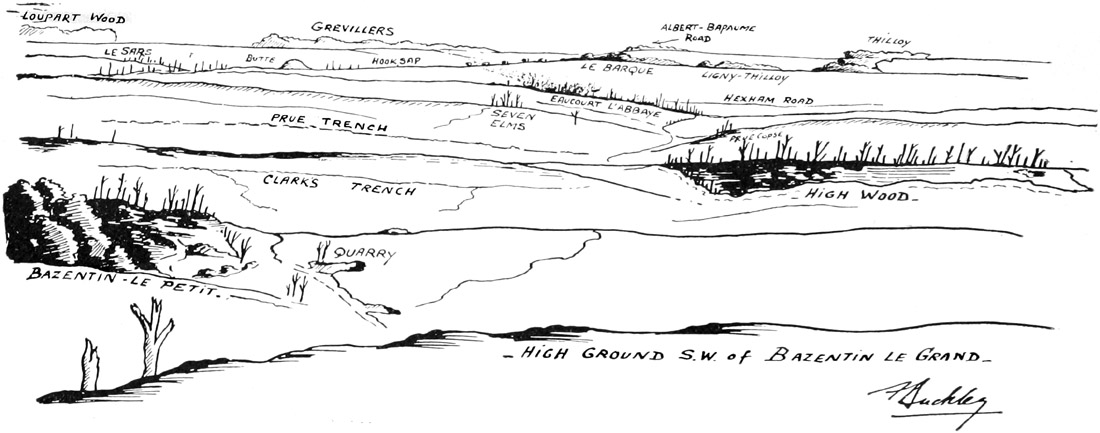 LOUPART WOOD
GREVILLERS
ALBERT-BAPAUME
ROAD
THILLOY
LE SARS
BUTTE
HOOK SAP
LE BARQUE
LIGNY-THILLOY
EAUCOURT L'ABBAYE
HEXHAM ROAD
SEVEN
ELMS
PRUE TRENCH
PRUE COPSE
CLARKS TRENCH
HIGH WOOD
QUARRY
BAZENTIN-LE PETIT.
HIGH GROUND S.W. of BAZENTIN LE GRAND
F Buckley